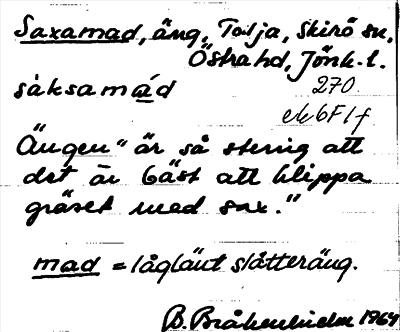 Saxamad, äng, Tolja, Skirö sn,
Östra hd, Jönk. l.
såksamád 270
ek 6F1f
"Ängen" är så stenig att
det är bäst att klippa
gräset med sax."
mad = låglänt slåtteräng.
B. 1964